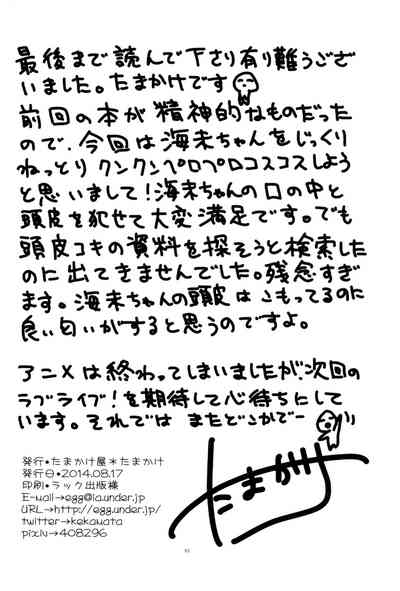 最後まで読んで下さり有り難うござ
いました。たまかけです
前回の本が精神的なものだった
ので、今回は海未ちゃんをじっくり
ねっとりクンクンペロペロコスコスしよう
と思いまして!海未ちゃんの口の中と
頭皮を犯せて大変満足です。でも
頭皮コキの資料を探そうと検索した
のに出てきませんでした。残念すぎ
ます。海未ちゃんの頭皮はこもってるのに
良い匂いがすると思うのですよ。
アニメは終わってしまいましたが、次回の
ラブライブ!を期待して心待ちにして
います。それでは またどこかでー
たまかけ
発行•たまかけ屋*たまかけ
発行日•2014.08.17
印刷•ラック出版様
E-mail→egg@ia.under.jp
URL→http://egg.under.jp/
twitter→kekamata
pixiv→408296